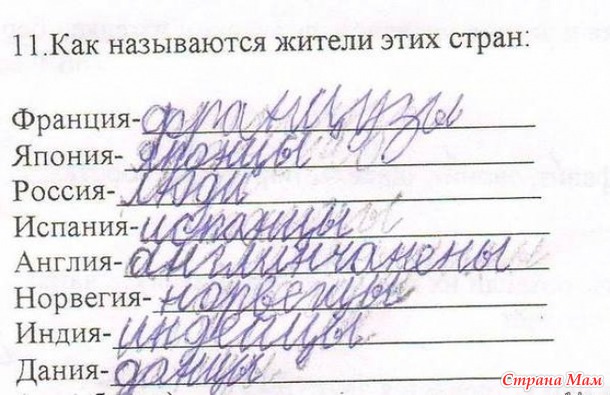 11.Как называются жители этих стран:
Франция- французы
Япония- японцы
Россия- люди
Испания- испанцы
Англия- англинчанены
Норвегия- норвегцы
Индия- индейцы
Дания- данцы
Страна Мам